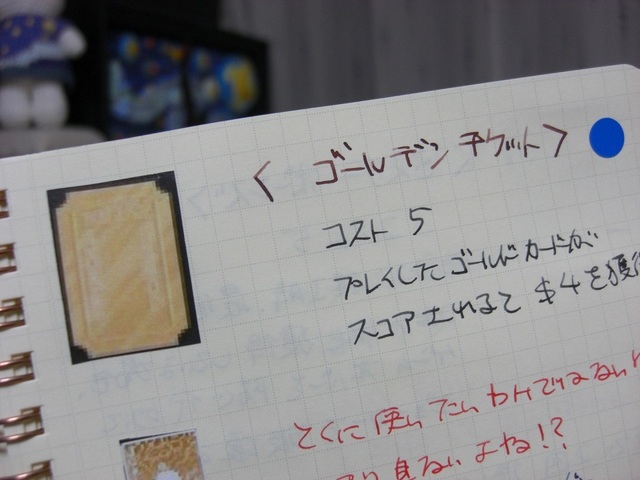 < ゴールデンチケット >
コスト 5
プレイしたゴールドカードが
スコアされると $4を獲得
とくに使いたいわけではない
見ないよね!?